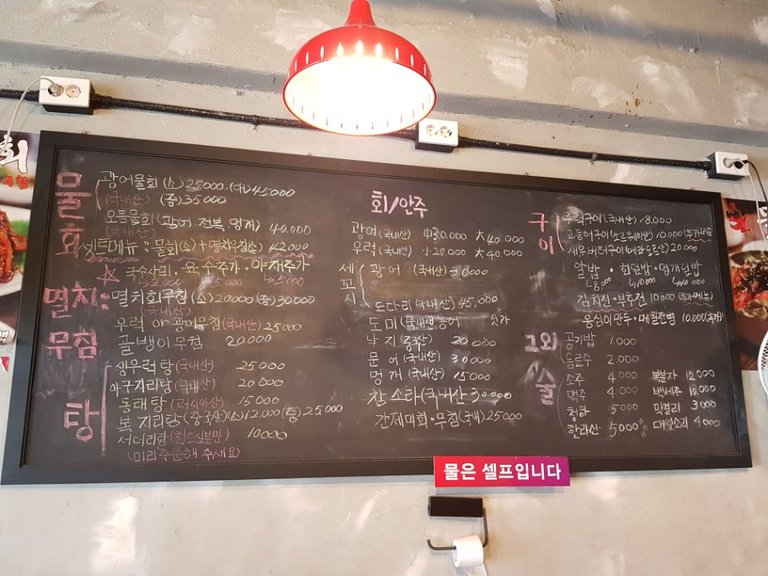 물회
광어물회 (소) 25000 · (대) 45000
(국내산) (중) 35000
모듬물회 (광어 전복 멍게) 40.000
셋트메뉴 : 물회(소) + 멸치무침(소) 42000
국수사리 · 육수추가 · 야채추가
멸치 : 멸치회무침 (소) 20000 (중) 30000
(국내산)
무침
우럭 광어무침 (국내산) 25000
골뱅이무침 20.000
탕
생우럭탕 (국내산) 25000
아구지리탕 (국내산) 20000
동태탕 (러시아산) 15000
복지리탕 (중국산) (소) 12.000 (중) 25.000
서더리탕 10000
(미리 주문해 주세요)
회/안주
광어 (국내산) 中30.000 大40.000
우럭 (국내산) 小20000 大40.000
세꼬시
광어 (국내산)
도다리 (국내산) 45,000
도미 (국내산) 농어 싯가
낙지 (중국산) 20000
문어 (국내산) 30000
멍게 (국내산) 15000
참소라 (국내산) 30000
간재미회 · 무침 (국내) 25000
구이
우럭구이 (국내산) 18.000
고등어구이 (노르웨이산) 10.000
새우버터구이 (에콰도르산) 20.000
알밥 · 회덮밥 · 멍게비빔밥
김치전 · 부추전 10000
옹심이만두 · 메밀전병 10,000
그외
공기밥 1.000
음료수 2.000
술
소주 4000 복분자 12000
맥주 4.000 백세주 10,000
청하 5000 막걸리 3000
한라산 5000 대선소주 4000
물은 셀프입니다
회